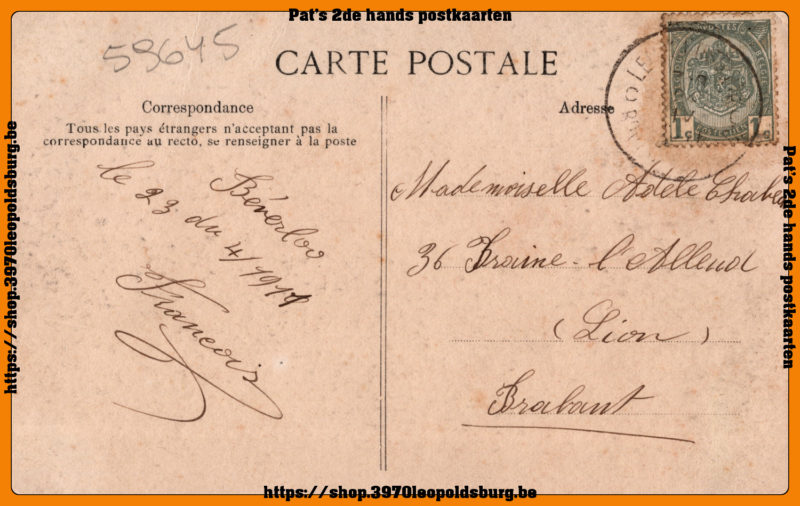 Pat's 2de hands postkaarten
59645
CARTE POSTALE
Correspondance
Tous les pays étrangers n'acceptant pas la
correspondance au recto, se renseigner à la poste
Adresse
1c 1c
Béverloo
le 23 du 4/1911
Francois
Mademoiselle Adèle
36 Braine-l'Alleud
(Lion)
Brabant
https://shop.3970leopoldsburg.be
Pat's 2de hands postkaarten
https://shop.3970leopoldsburg.be